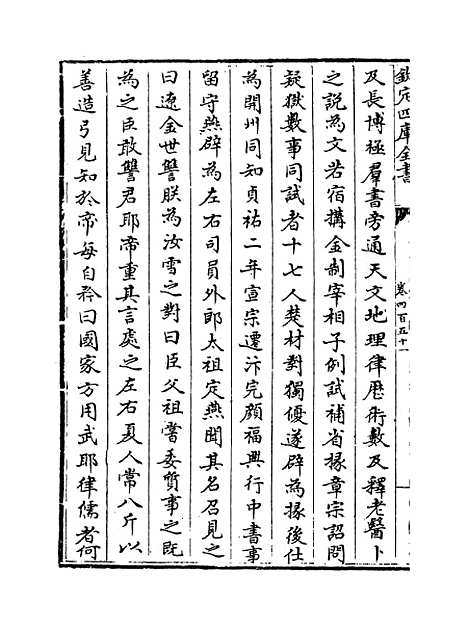 欽定四庫全書
卷四百五十一
及長博極羣書旁通天文地理律厯術數及釋老醫卜
之說為文若宿搆金制宰相子例試補省掾章宗詔問
疑獄數事同試者十七人楚材對獨優遂辟為掾後仕
為開州同知貞祐二年宣宗遷汴完顔福興行中書事
留守燕辟為左右司員外郎太祖定燕聞其名召見之
曰遼金世讐朕為汝雪之對曰臣父祖嘗委質事之既
為之臣敢讐君耶帝重其言處之左右夏人常八斤以
善造弓見知於帝每自矜曰國家方用武耶律儒者何